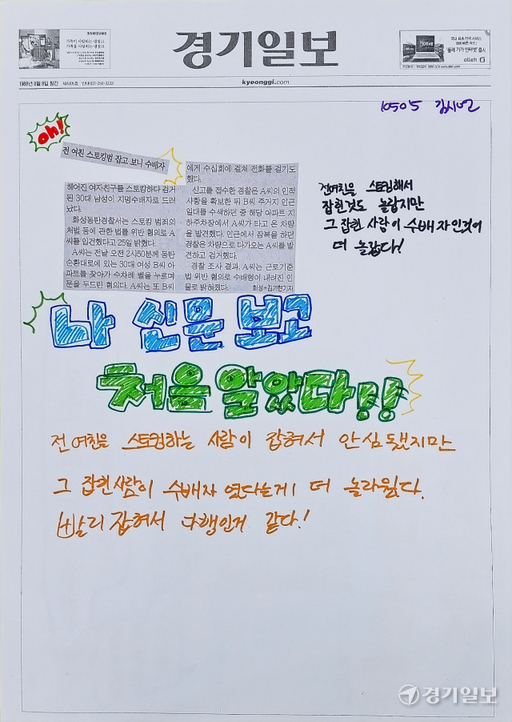 경기일보
kyeonggi.com
olleh
10505 김시민
oh!
전 여친 스토킹범 잡고 보니 수배자
헤어진 여자친구를 스토킹하다 검거
된 30대 남성이 지명수배자로 드러
났다.
화성동탄경찰서는 스토킹 범죄의
처벌 등에 관한 법률 위반 혐의로 A
씨를 입건했다고 25일 밝혔다.
A씨는 전날 오전 2시50분께 동탄
순환대로에 있는 30대 여성 B씨 아
파트를 찾아가 수차례 벨을 누르며
문을 두드린 혐의다. A씨는 또 B씨
에게 수십회에 걸쳐 전화를 걸기도
했다.
신고를 접수한 경찰은 A씨의 인적
사항을 확보한 뒤 B씨 주거지 인근
일대를 수색하던 중 해당 아파트 지
하주차장에서 A씨가 타고 온 차량
을 발견했다. 인근에서 잠복을 하던
경찰은 차량으로 다가오는 A씨를 발
견하고 검거했다.
경찰 조사 결과, A씨는 근로기준
법 위반 혐의로 수배령이 내려진 인
물로 밝혀졌다.
화성=김기현기자
전여친은 스토킹해서
잡힌것도 놀랍지만
그 잡힌 사람이 수배자인것이
더 놀랍다!
나 신문 보고
처음 알았다!!
전 여친은 스토킹하는 사람이 잡혀서 안심 됐지만
그 잡힌사람이 수배자 였다는게 더 놀라웠다.
빨리 잡혀서 다행인거 같다!
경기일보